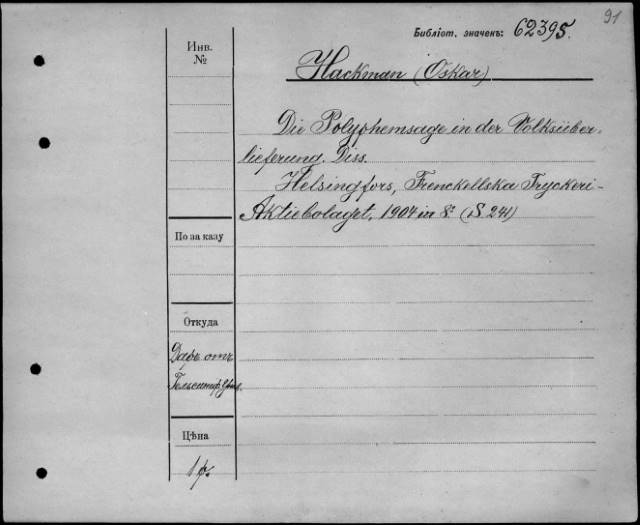 91
Библіот. значекъ: 62395.
Инв.
№
Hackman (Oskar)
Die Polyphemsage in der Volksüber-
lieferung. Diss.
Helsingfors, Frenckellska Tryckeri-
Aktiebolaget, 1904 in 8º (S. 241)
По заказу
Откуда
Даръ отъ
Гельсингф. Унив.
Цѣна
1 р.